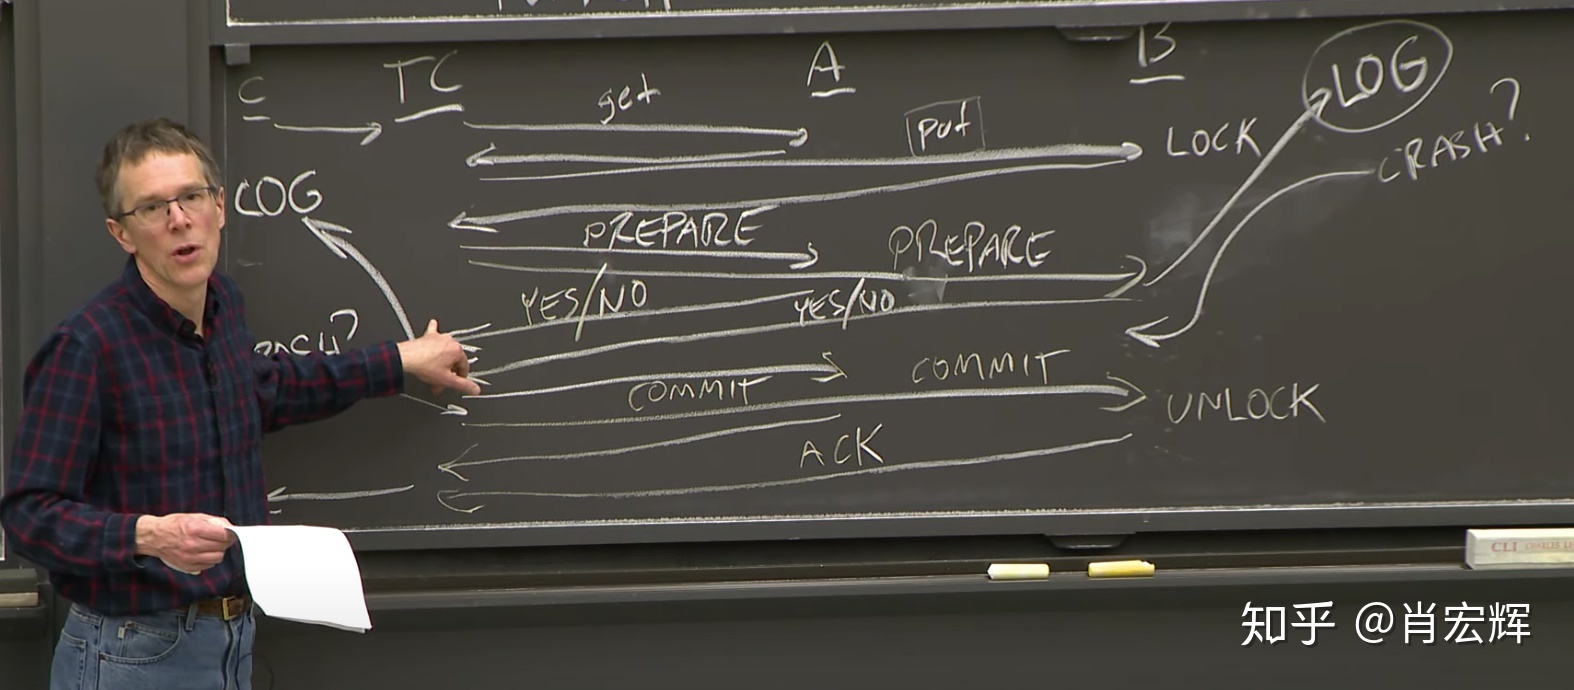 C TC A B LOG
get
put LOCK CRASH?
LOG
PREPARE PREPARE
YES/NO YES/NO
COMMIT COMMIT
UNLOCK
ACK
CLI
知乎 @肖宏辉